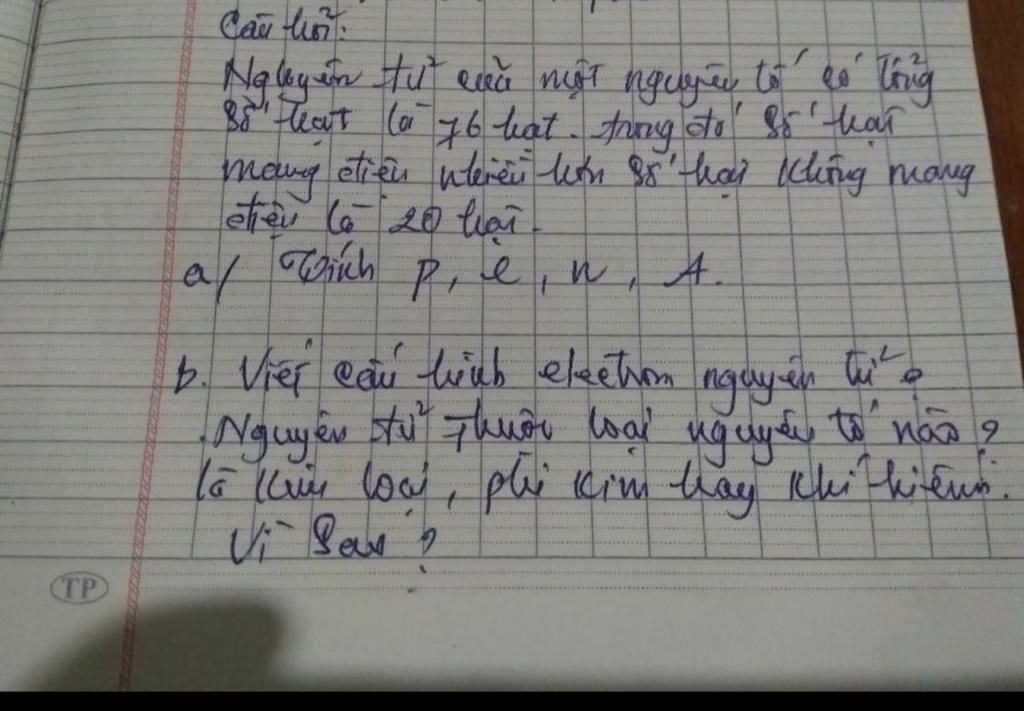 Câu hỏi:
Nguyên tử của một nguyên tố có tổng
số hạt là 76 hạt. trong đó số hạt
mang điện nhiều hơn số hạt không mang
điện là 20 hạt.
a/ Tính p, e, n, A.
b. Viết cấu hình electron nguyên tử?
Nguyên tử thuộc loại nguyên tố nào?
là kim loại, phi kim hay khí hiếm.
Vì sao?
TP